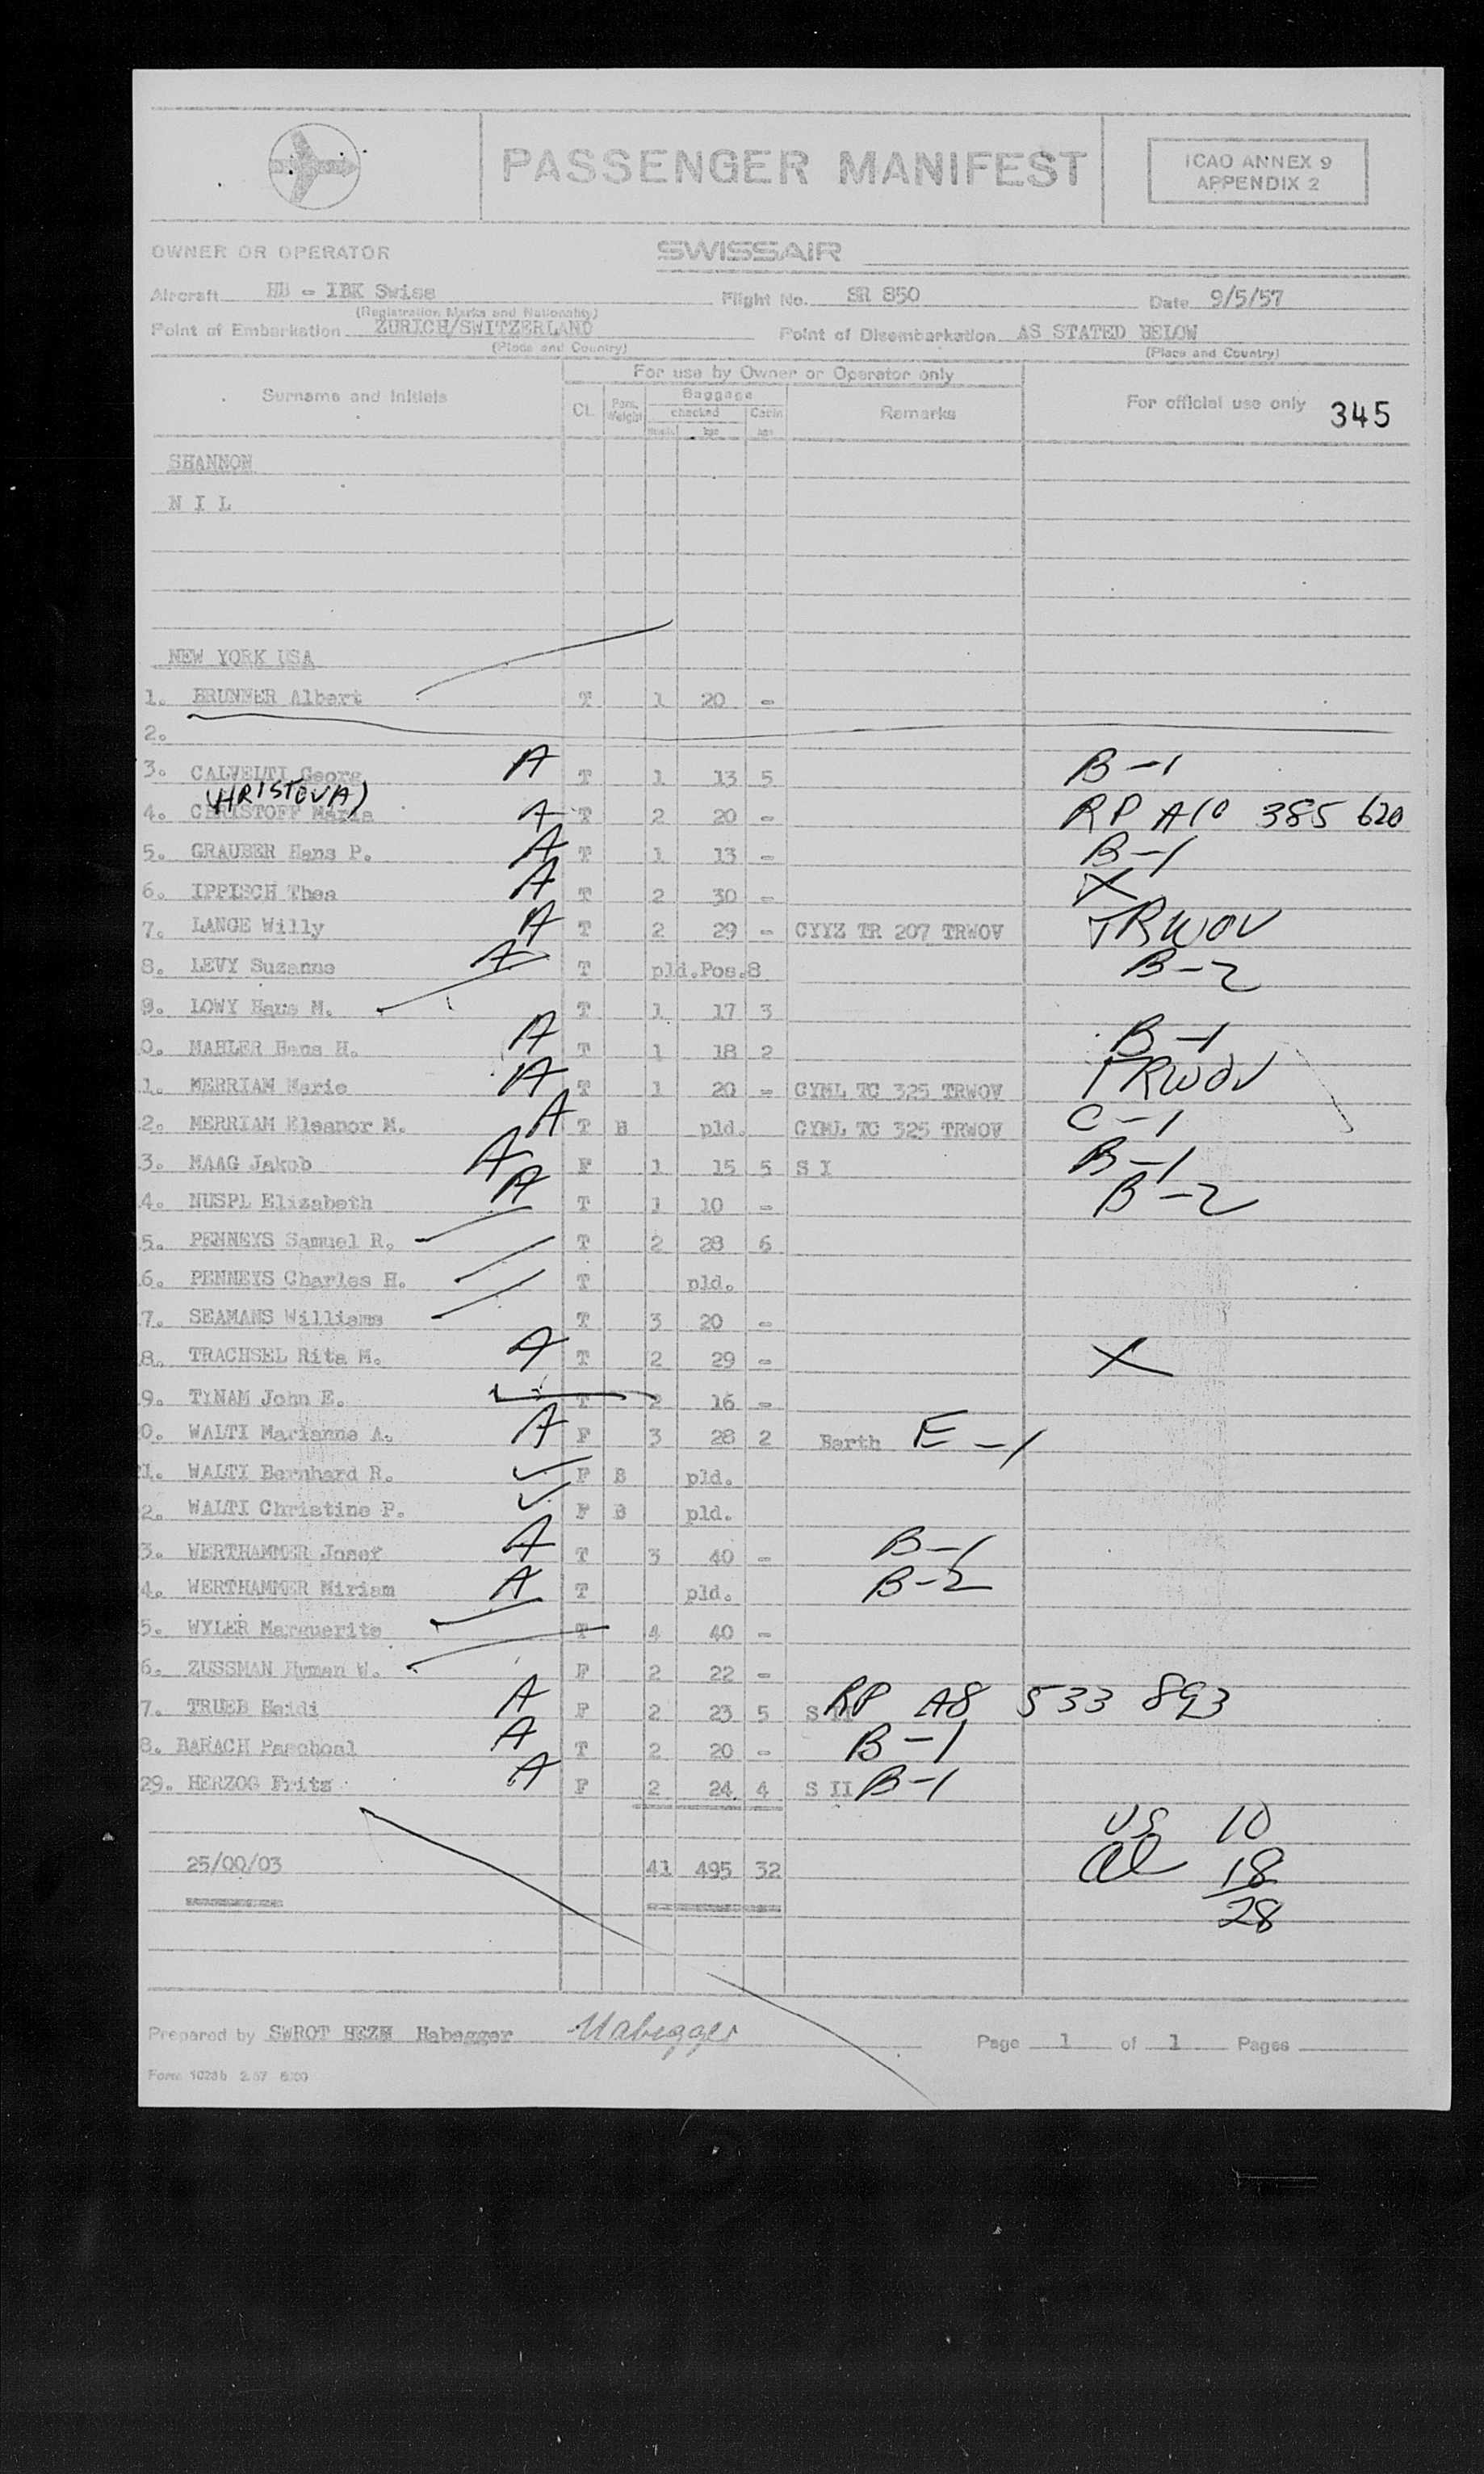 PASSENGER MANIFEST
ICAO ANNEX 9
APPENDIX 2
OWNER OR OPERATOR SWISSAIR
Aircraft HB - IBK Swiss Flight No. SR 850 Date 9/5/57
(Registration Marks and Nationality)
Point of Embarkation ZURICH/SWITZERLAND Point of Disembarkation AS STATED BELOW
(Place and Country) (Place and Country)
For use by Owner or Operator only
Surname and Initials Cl. Pass. Weight Baggage checked kgs Cabin kgs Remarks For official use only 345
SHANNON
N I L
NEW YORK USA
1. BRUNNER Albert T 1 20 -
2.
3. CALVELTI Georg A T 1 13 5 B-1
(HRISTOVA)
4. CHRISTOFF Maria A T 2 20 - RP A10 385 620
5. GRAUBER Hans P. A T 1 13 - B-1
6. IPPISCH Thea A T 2 30 - X
7. LANGE Willy A T 2 29 - CYYZ TR 207 TRWOV TRWOV
8. LEVY Suzanne A T pld.Pos.8 B-2
9. LOWY Hans M. T 1 17 3
0. MAHLER Hans H. A T 1 18 2 B-1
1. MERRIAM Marie A T 1 20 - CYML TC 325 TRWOV TRWOV
2. MERRIAM Eleanor M. A T H pld. CYML TC 325 TRWOV C-1
3. MAAG Jakob A F 1 15 5 S I B-1
4. NUSPL Elizabeth A T 1 10 - B-2
5. PENNEYS Samuel R. T 2 28 6
6. PENNEYS Charles H. T pld.
7. SEAMANS Williams T 3 20 -
8. TRACHSEL Rita M. A T 2 29 - X
9. TYNAM John E. T 2 16 -
0. WALTI Marianne A. A F 3 28 2 Barth E-1
1. WALTI Bernhard R. ✓ F B pld.
2. WALTI Christine P. ✓ F B pld.
3. WERTHAMMER Josef A T 3 40 - B-1
4. WERTHAMMER Miriam A T pld. B-2
5. WYLER Marguerite T 4 40 -
6. ZUSSMAN Hyman W. F 2 22 -
7. TRUEB Heidi A F 2 23 5 S II RP A8 533 893
8. BARACH Paschoal A T 2 20 - B-1
29. HERZOG Fritz A F 2 24 4 S II B-1
US 10
25/00/03 41 495 32 al 18
28
Prepared by SWROT HEZH Habegger Habegger Page 1 of 1 Pages
Form 1028b 2.57